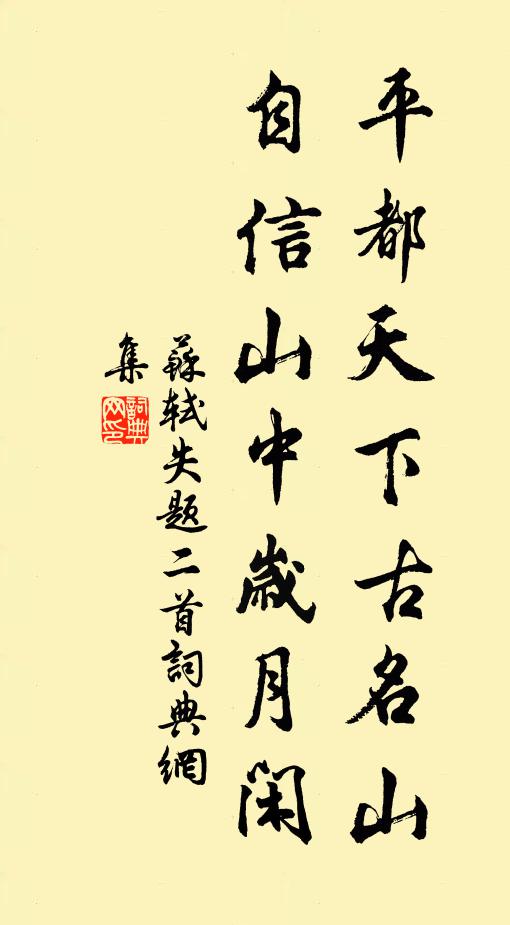 平都天下古名山
自信山中歲月闲
蘇軾失题二首詞典網
集
詞典網印